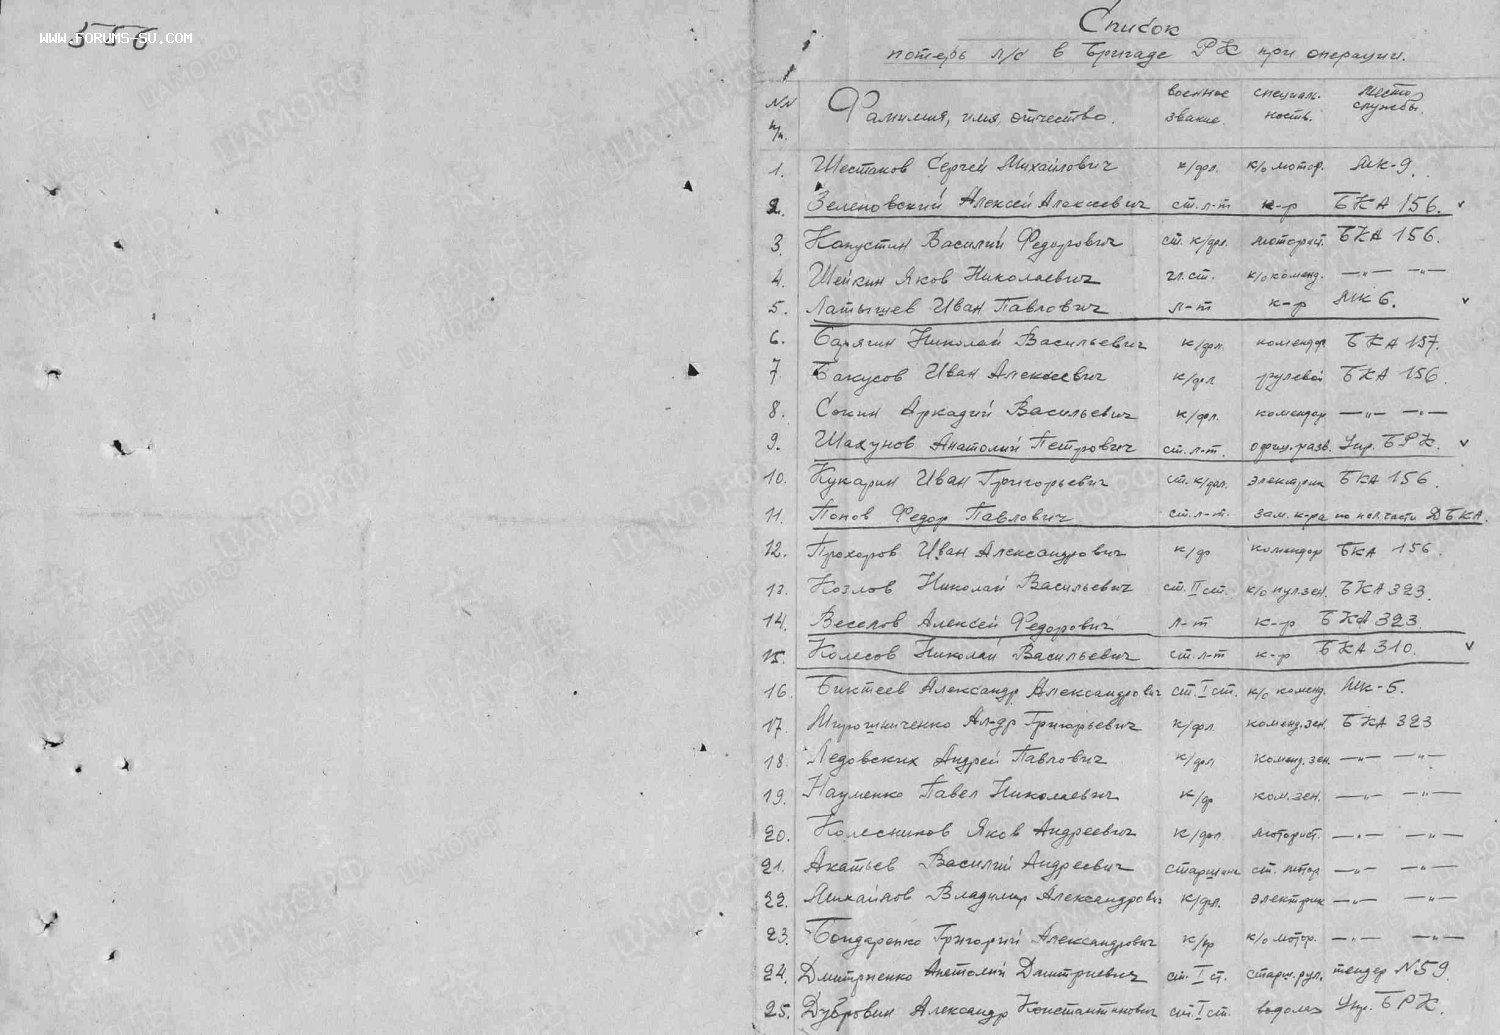 WWW.FORUMS-SU.COM
556
Список
потерь л/с в бригаде РК при операции.
NN п/п. Фамилия, имя, отчество. военное звание. специаль-ность. Место службы.
1. Шестаков Сергей Михайлович к/фл. к/о мотор. МК-9.
2. Зеленовский Алексей Алексеевич ст. л-т к-р БКА 156. v
3. Капустин Василий Федорович ст. к/фл. моторист. БКА 156.
4. Шейкин Яков Николаевич гл. ст. к/о коменд. —„— —„—
5. Латышев Иван Павлович л-т к-р МК 6. v
6. Николай Васильевич к/фл. комендор БКА 157.
7. Бакусов Иван Алексеевич к/фл рулевой БКА 156.
8. Сокин Аркадий Васильевич к/фл. комендор —„— —„—
9. Шахунов Анатолий Петрович ст. л-т. офиц. разв. Упр. БРК. v
10. Кукарин Иван Григорьевич ст. к/фл. электрик БКА 156.
11. Попов Федор Павлович ст. л-т. зам. к-ра по пол. части ДБКА.
12. Прохоров Иван Александрович к/ф комендор БКА 156.
13. Козлов Николай Васильевич ст. II ст. к/о пул. зен. БКА 323.
14. Веселов Алексей Федорович л-т к-р БКА 323.
15. Колесов Николай Васильевич ст. л-т к-р БКА 310. v
16. Биктеев Александр Александрович ст. I ст. к/о коменд. МК-5.
17. Мирошниченко Ал-др Григорьевич к/фл коменд. зен. БКА 323
18. Ледовских Андрей Павлович к/фл коменд. зен. —„— —„—
19. Науменко Павел Николаевич к/ф ком. зен. —„— —„—
20. Колесников Яков Андреевич к/фл. моторист. —„— —„—
21. Акатьев Василий Андреевич старшина ст. мотор —„— —„—
22. Михайлов Владимир Александрович к/фл. электрик —„— —„—
23. Бондаренко Григорий Александрович к/ф к/о мотор. —„— —„—
24. Дмитриенко Анатолий Дмитриевич ст. I ст. старш. рул. тендер N59.
25. Дубровин Александр Константинович ст. I ст. водолаз Упр. БРК.
ЦАМО РФ